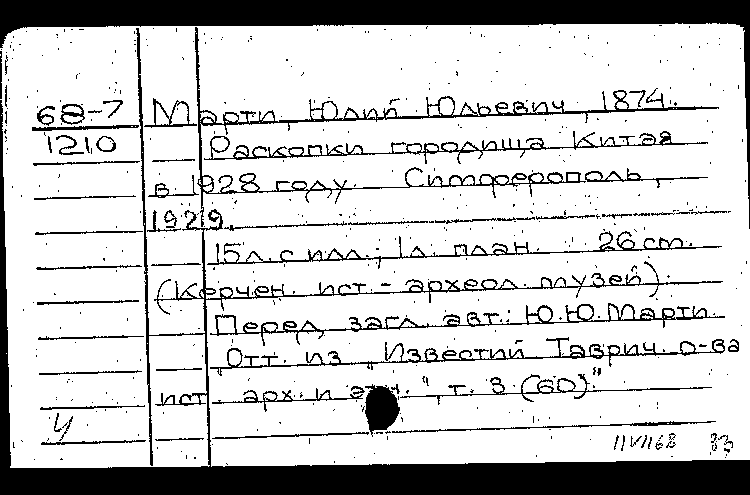 68-7 Марти, Юлий Юльевич, 1874.
1210 Раскопки городища Китая
в 1928 году. Симферополь,
1929.
15 л. с илл.; 1 л. план. 26 cm.
(Керчен. ист.- археол. музей).
Перед загл. авт.: Ю.Ю. Марти.
"Отт. из „Известий Таврич. о-ва
ист. арх. и этн.", т. 3 (60)."
У
83